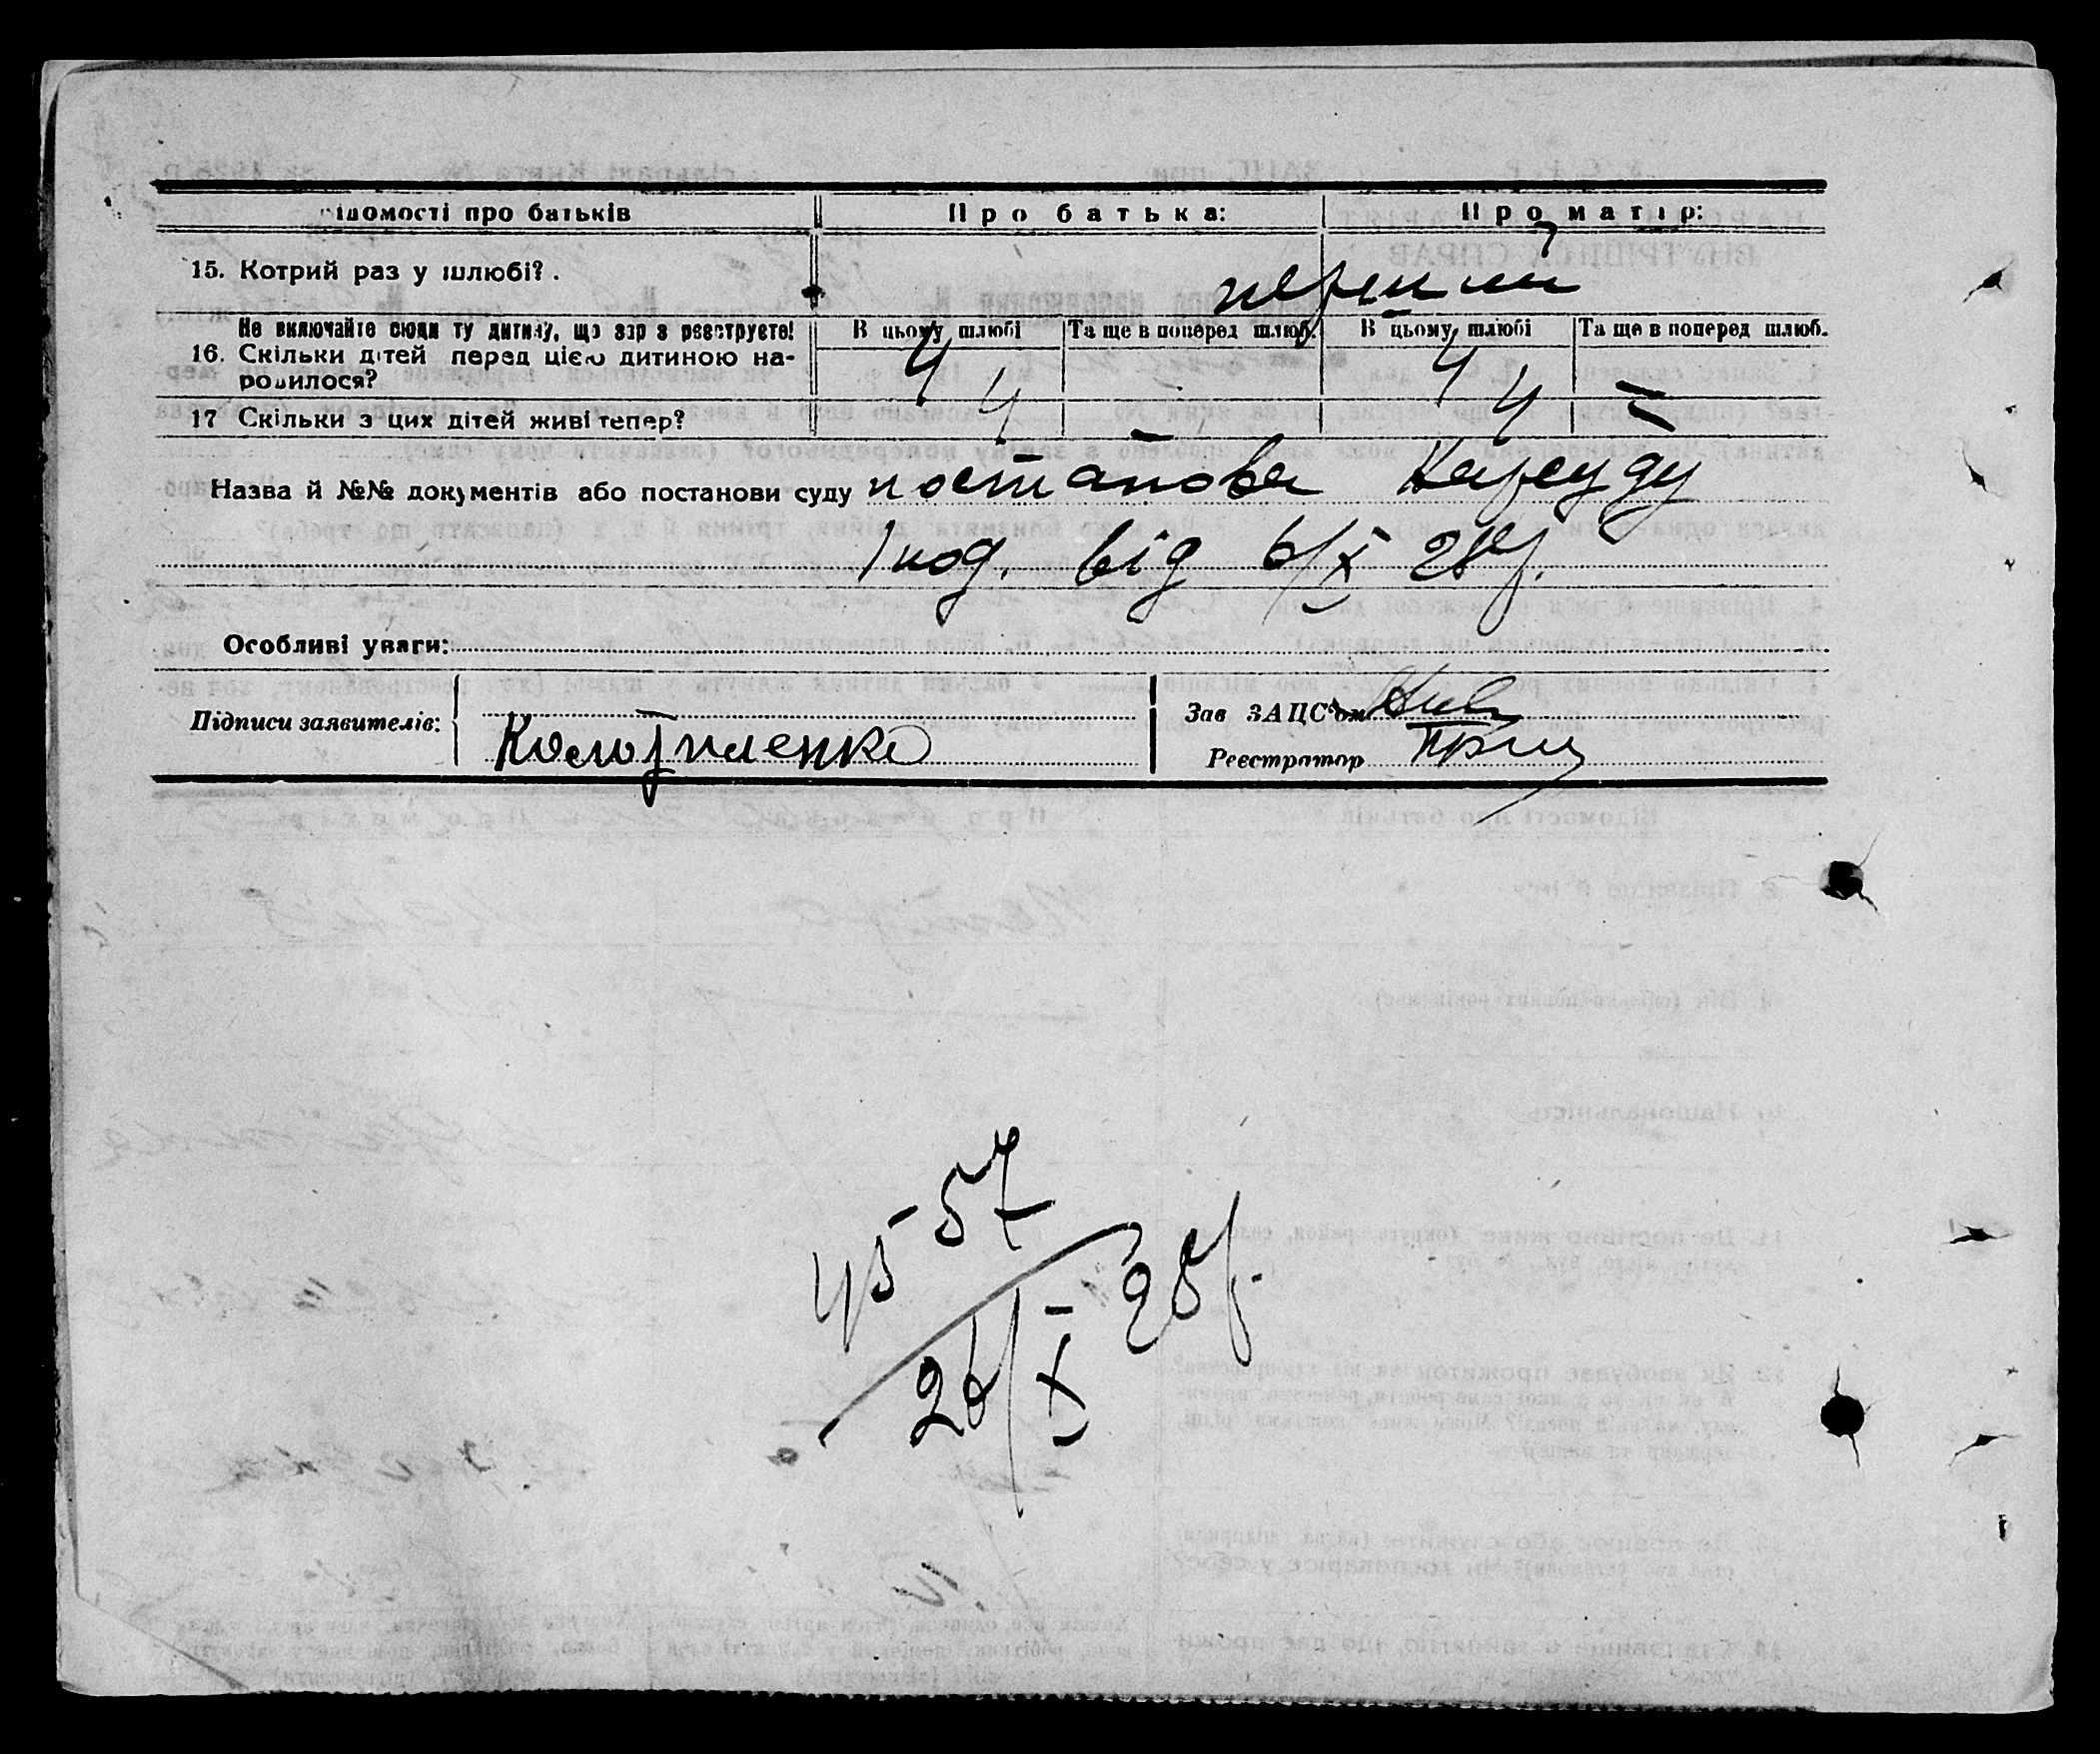 ідомості про батьків Про батька: Про матір:
15. Котрий раз у шлюбі? . перший
Не включайте сюди ту дитину, що зараз реєструєте! В цьому шлюбі Та ще в поперед шлюб. В цьому шлюбі Та ще в поперед шлюб.
16. Скільки дітей перед цією дитиною на-
родилося? 4 4
17 Скільки з цих дітей живі тепер? 4 — 4 —
Назва й №№ документів або постанови суду постанова Нарсуду
від 6/X 28р.
Особливі уваги:
Підписи заявителів: Зав ЗАЦС'ом
Реєстратор
45-57
26/X 28р.